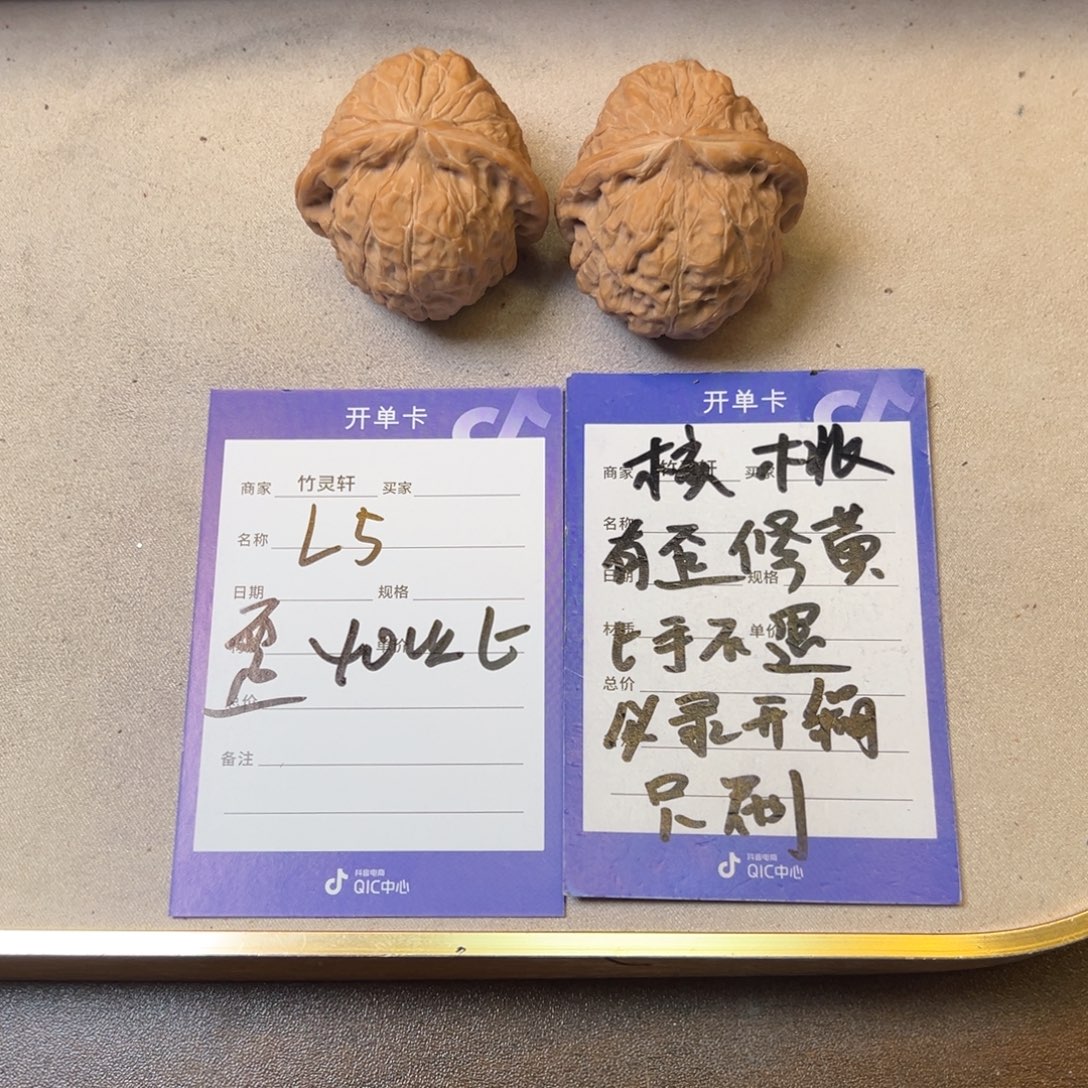 开单卡
商家 竹灵轩 买家
名称 L5
日期 规格
歪 40以上
单价
总价
备注
抖音电商
QIC中心
开单卡
核桃
商家 竹灵轩 买家
名称
有歪修黄
日期 规格
上手不退
材质 单价
总价
必录开
只刷
抖音电商
QIC中心